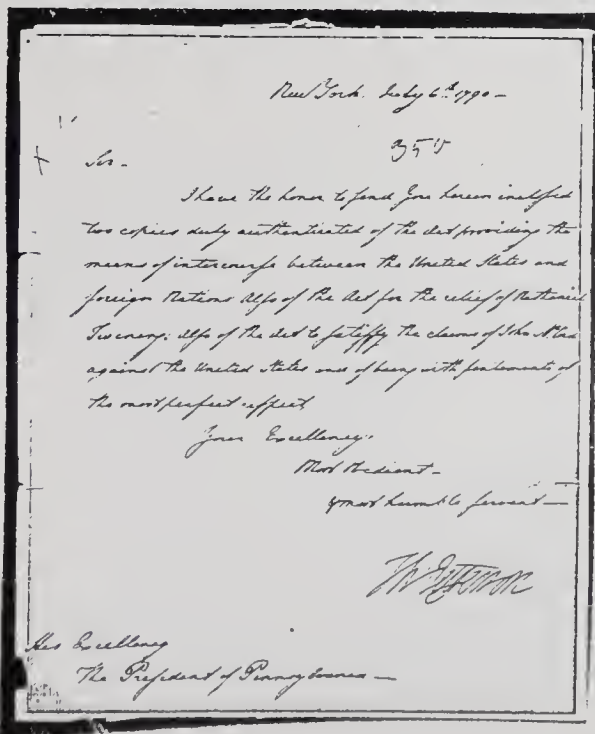 New York. July 6th 1790 —
Sir —
I have the honor to send you herein inclosed
two copies duly authenticated of the Act providing the
means of intercourse between the United States and
foreign Nations Also of the Act for the relief of Nathaniel
Twining: Also of the Act to satisfy the claims of John McCord
against the United States and of being with sentiments of
the most perfect respect
Your Excellency's
Most Obedient —
& most humble servant —
Th Jefferson
His Excellency
The President of Pennsylvania —